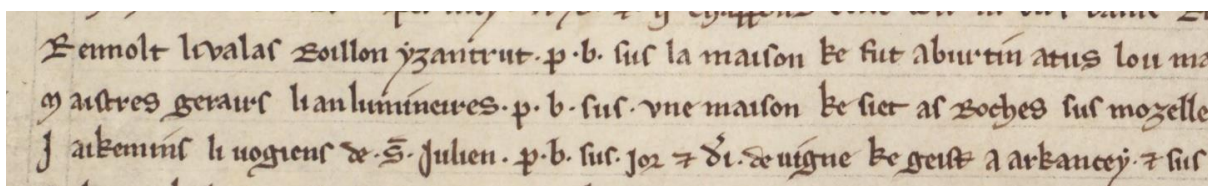 Rennolt li valas Roillon yzantrut · p · b · sus la maison ke fut aburtin atus lou ma
Maistres gerairs li anlumineires · p · b · sus · vne maison ke siet as Roches sus mozelle
Jaikemins li uogiens de · S̄ · Julien · p · b · sus · jor ⁊ d̾i · de uigne ke geist a arkancey · ⁊ sus